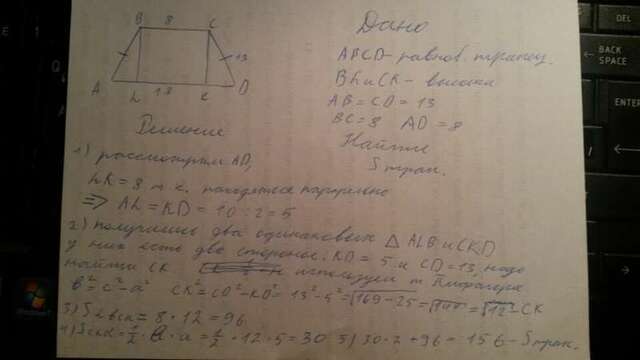 B 8 C
13
A L 18 K D
Дано
ABCD - равноб. трапец.
BL и CK - высоты
AB = CD = 13
BC = 8 AD = 8
Найти
S трап.
Решение
1) рассмотрим AD,
LK = 8 т.к. находится параллельно
=> AL = KD = 10 : 2 = 5
2) получились два одинаковых △ ALB и CKD
у них есть две стороны: KD = 5 и CD = 13, надо
найти CK используем т. Пифагора
b² = c² - a² CK² = CD² - KD² = 13² - 5² = √169 - 25 = √144 = √12 - CK
3) S LBCK = 8 · 12 = 96
4) S CKD = 1/2 · b · a = 1/2 · 12 · 5 = 30 5) 30 · 2 + 96 = 156 - S трап.
DEL
BACK SPACE
ENTER